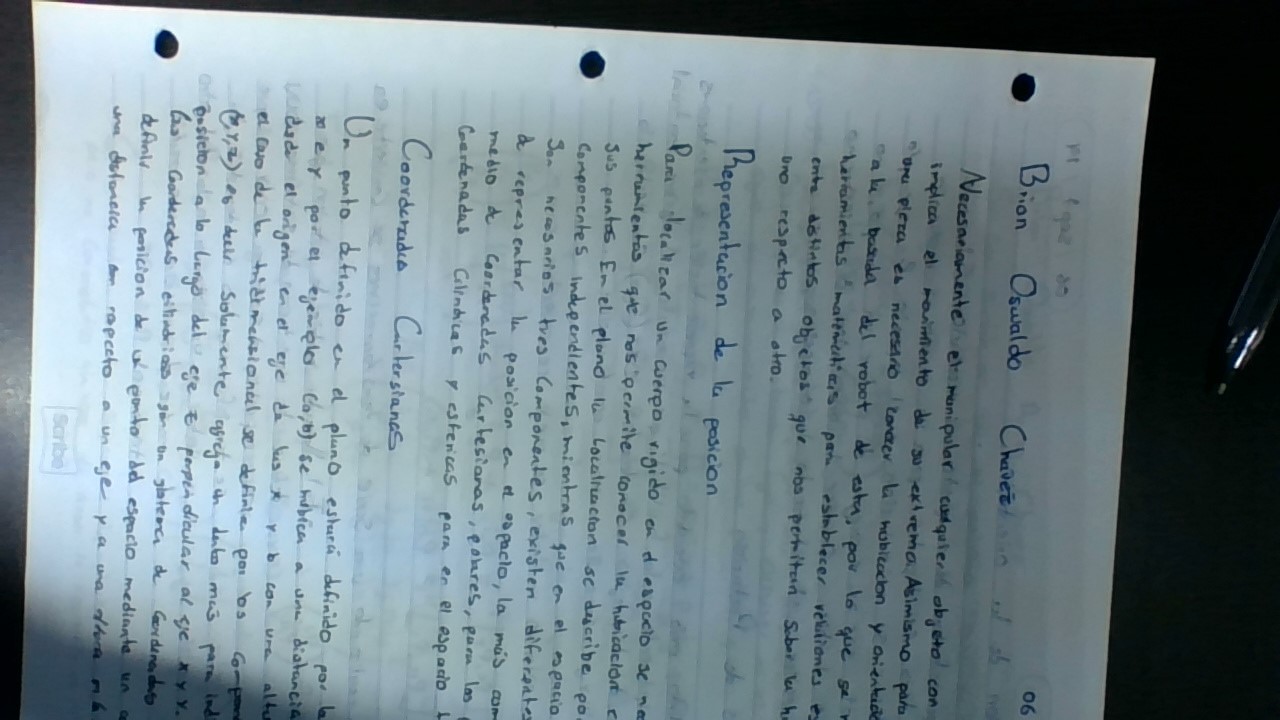 06
Brion Oswaldo Chavez
Necesariamente el manipular cualquier objeto con
implica el movimiento de su extremo. Asimismo para
una pieza es necesario conocer la hubicacion y orientació
a la basada del robot de esta, por lo que se n
herramientas matemáticas para establecer relaciones es
entre distintos objetos que nos permitan saber la hu
uno respecto a otro.
Representacion de la posicion
Para localizar un cuerpo rigido en el espacio se ne
herramientas que nos permite conocer la hubicación e
sus puntos En el plano la localizacion se describe por
componentes independientes, mientras que en el espacio
Son necesarios tres componentes, existen diferentes
de representar la posicion en el espacio, la más com
medio de coordenadas Cartesianas, polares, para los
Coordenadas Cilindricas y esfericas para en el espacio
Coordenadas Cartersianas
Un punto definido en el plano estará definido por la
x e y por el ejemplo (a,b) se hubica a una distancia
desde el origen en el eje de las x y b con una altu
el caso de la tridimensional se define por los Compon
(x,y,z) es decir solamente agrega un dato más para ind
posicion a lo largo del eje z perpendicular al eje x y y.
las Cordenadas cilindricas son un sistema de Cordenadas
definir la posicion de un punto del espacio mediante un
una distancia con respecto a un eje y a una altura
Scribe